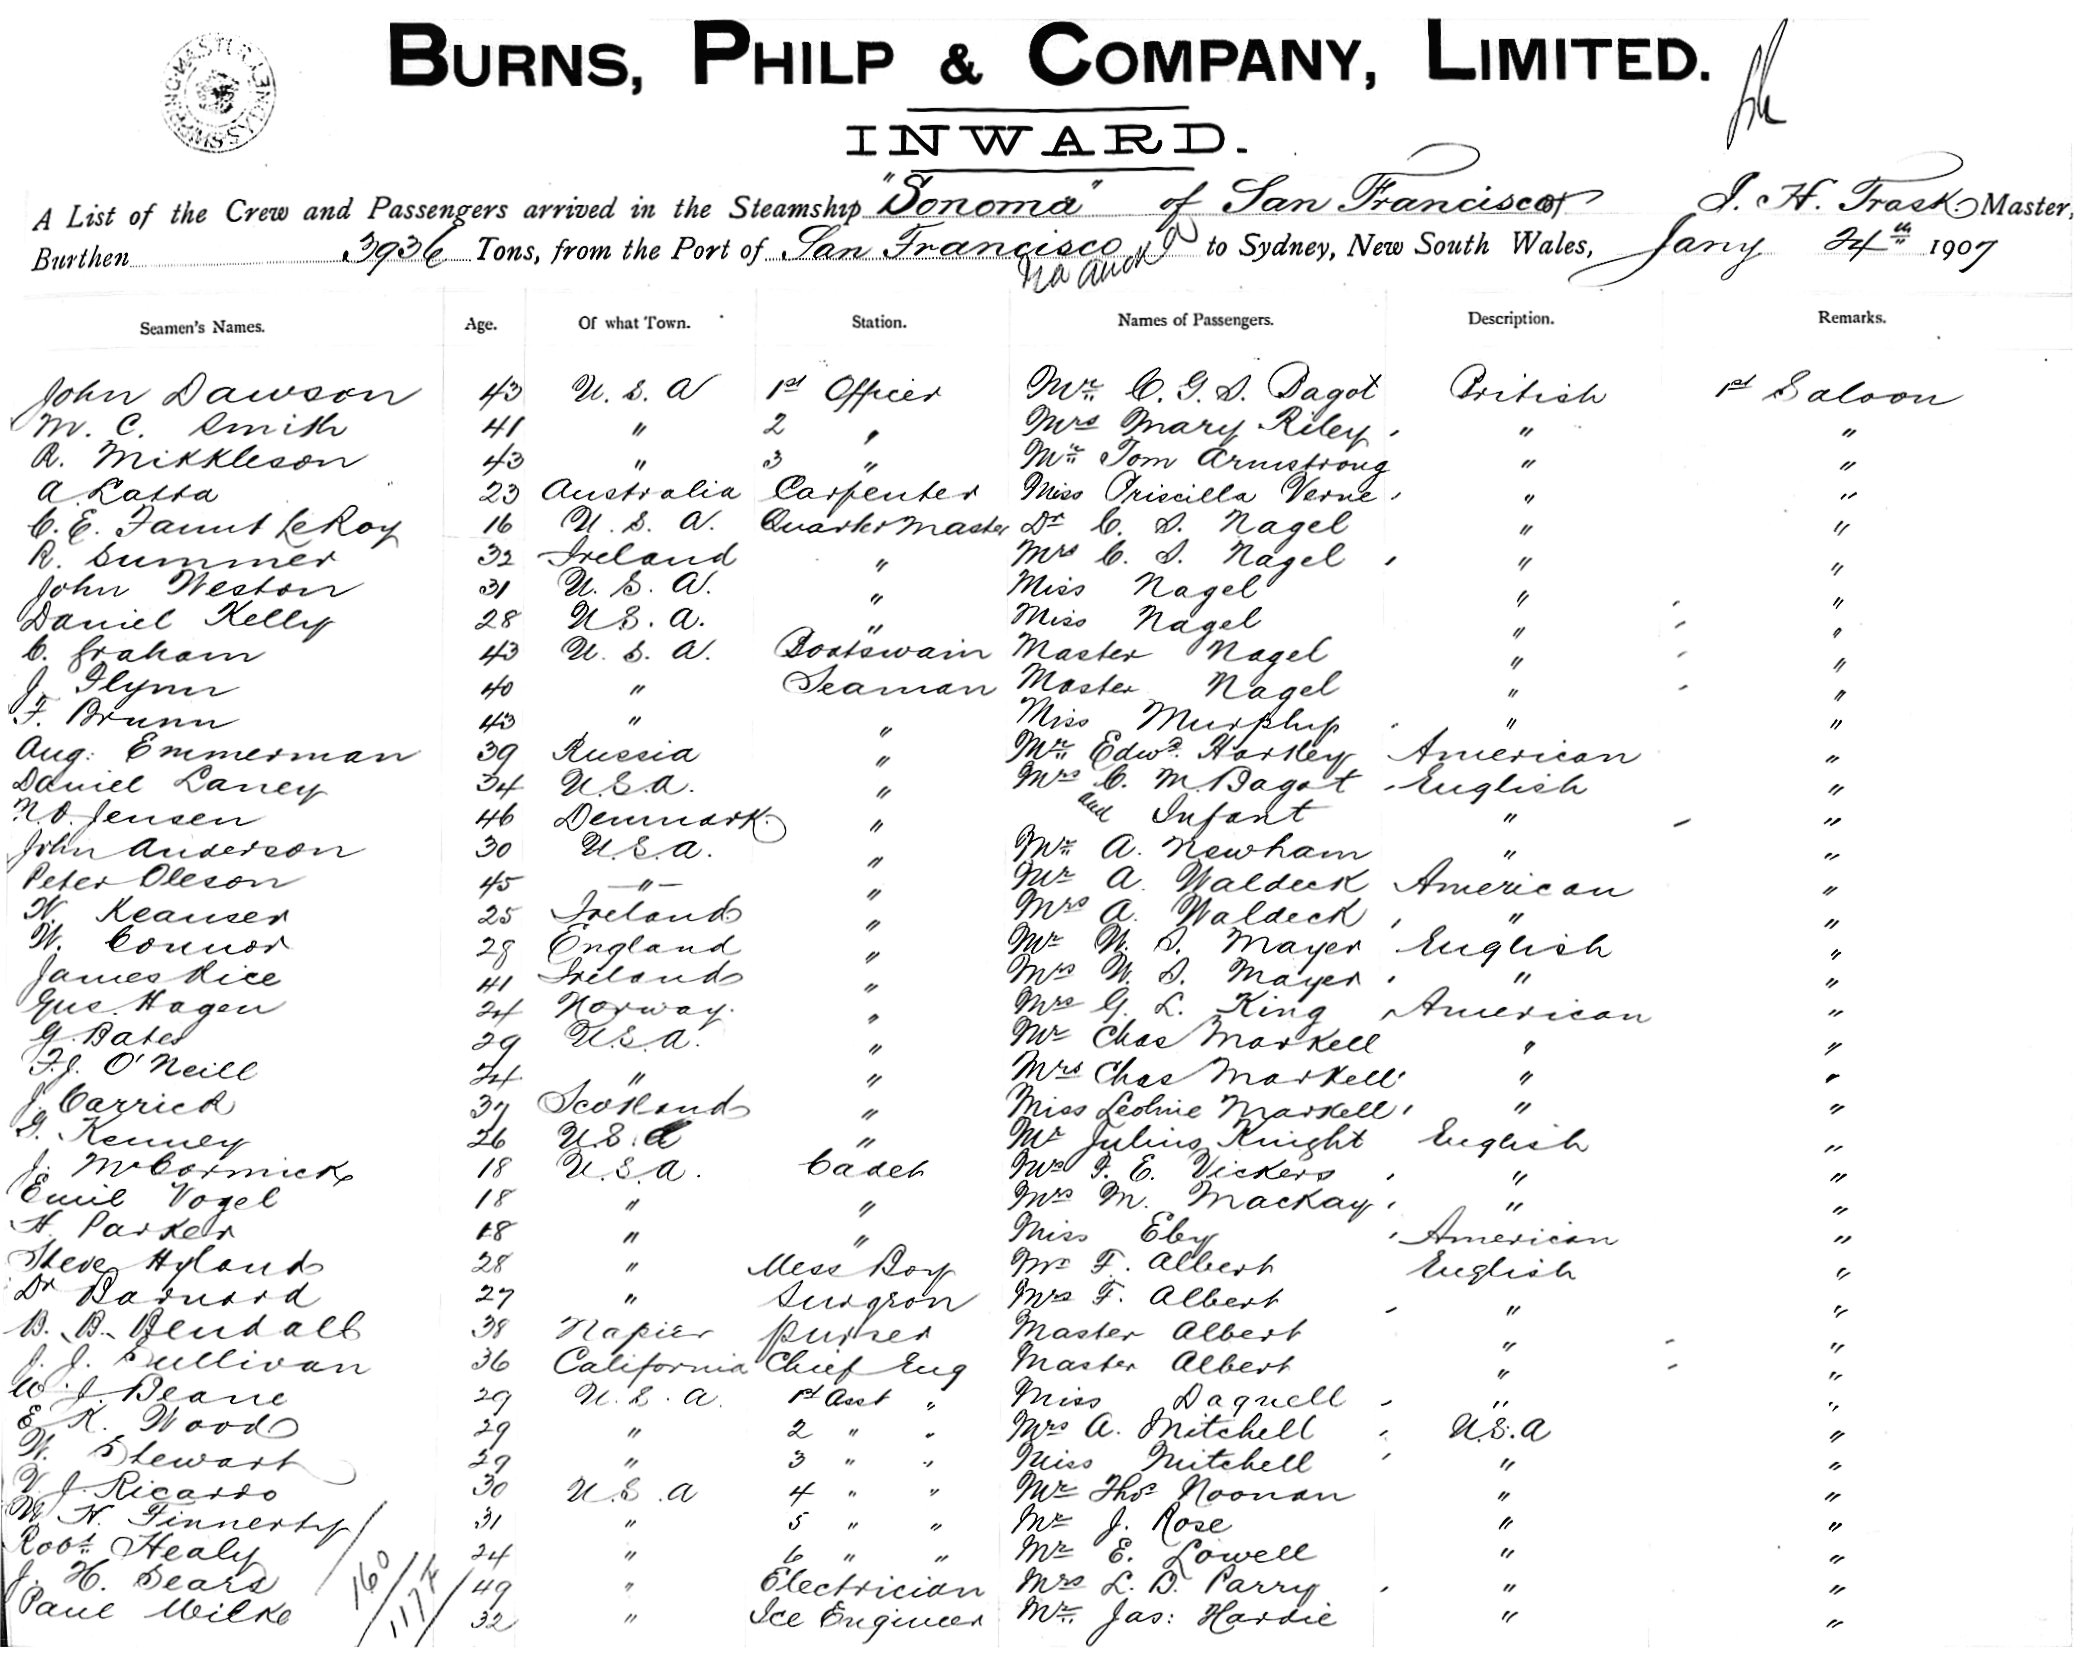 BURNS, PHILP & COMPANY, LIMITED.
INWARD.
A List of the Crew and Passengers arrived in the Steamship "Sonoma" of San Francisco of J. H. Trask Master,
Burthen 3936 Tons, from the Port of San Francisco to Sydney, New South Wales, Jany 24th 1907
via Auck
Seamen's Names. Age. Of what Town. Station. Names of Passengers. Description. Remarks.
John Dawson 43 U.S.A 1st Officer Mr. C. G. S. Bagot British 1st Saloon
M. C. Smith 41 " 2 " Mrs Mary Riley " "
R. Mikkleson 43 " 3 " Mr. Tom Armstrong " "
A. Latta 23 Australia Carpenter Miss Priscilla Verne " "
C. E. Fanut LeRoy 16 U.S.A. Quarter Master Dr C. S. Nagel " "
R. Summer 32 Ireland " Mrs C. S. Nagel " "
John Weston 31 U.S.A. " Miss Nagel " "
Daniel Kelly 28 U.S.A. " Miss Nagel " "
C. Graham 43 U.S.A. Boatswain Master Nagel " "
J. Flynn 40 " Seaman Master Nagel " "
F. Brunn 43 " " Miss Murphy " "
Aug: Emmerman 39 Russia " Mr. Edwd. Harkey American "
Daniel Laney 34 U.S.A. " Mrs C. M. Bagot English "
N.O. Jensen 46 Denmark. " and Infant " "
John Anderson 30 U.S.A. " Mr. A. Newham " "
Peter Oleson 45 —"— " Mr A. Waldeck American "
W. Keanser 25 Ireland " Mrs A. Waldeck " "
W. Connor 28 England " Mr W. S. Mayer English "
James Rice 41 Ireland " Mrs W. S. Mayer " "
Gus. Hagen 24 Norway. " Mrs G. L. King American "
G. Bates 29 U.S.A. " Mr Chas Markell " "
F.J. O'Neill 24 " " Mrs Chas Markell " "
J. Carrick 37 Scotland " Miss Leoline Markell " "
G. Kenney 26 U.S.A " Mr Julius Knight English "
J. McCormick 18 U.S.A. Cadet Mrs F. E. Vickers " "
Emil Vogel 18 " " Mrs M. Mackay " "
H. Parker 18 " " Miss Eby American "
Steve Hyland 28 " Mess Boy Mr F. Albert English "
Dr Barnard 27 " Surgeon Mrs F. Albert " "
B. B. Bendall 38 Napier Purser Master Albert " "
J. J. Sullivan 36 California Chief Eng Master Albert " "
W. J. Deane 29 U.S.A. 1st Asst " Miss Dagnell " "
E. K. Wood 29 " 2 " " Mrs A. Mitchell U.S.A "
W. Stewart 29 " 3 " " Miss Mitchell " "
V. J. Ricardo 30 U.S.A 4 " " Mr Thos Noonan " "
M. H. Finnerty 31 " 5 " " Mr J. Rose " "
Robt. Healy 24 " 6 " " Mr E. Lowell " "
J. H. Sears 49 " Electrician Mrs L. D. Parry " "
Paul Wilke 160/117+/ 32 " Ice Engineer Mr. Jas: Hardie " "